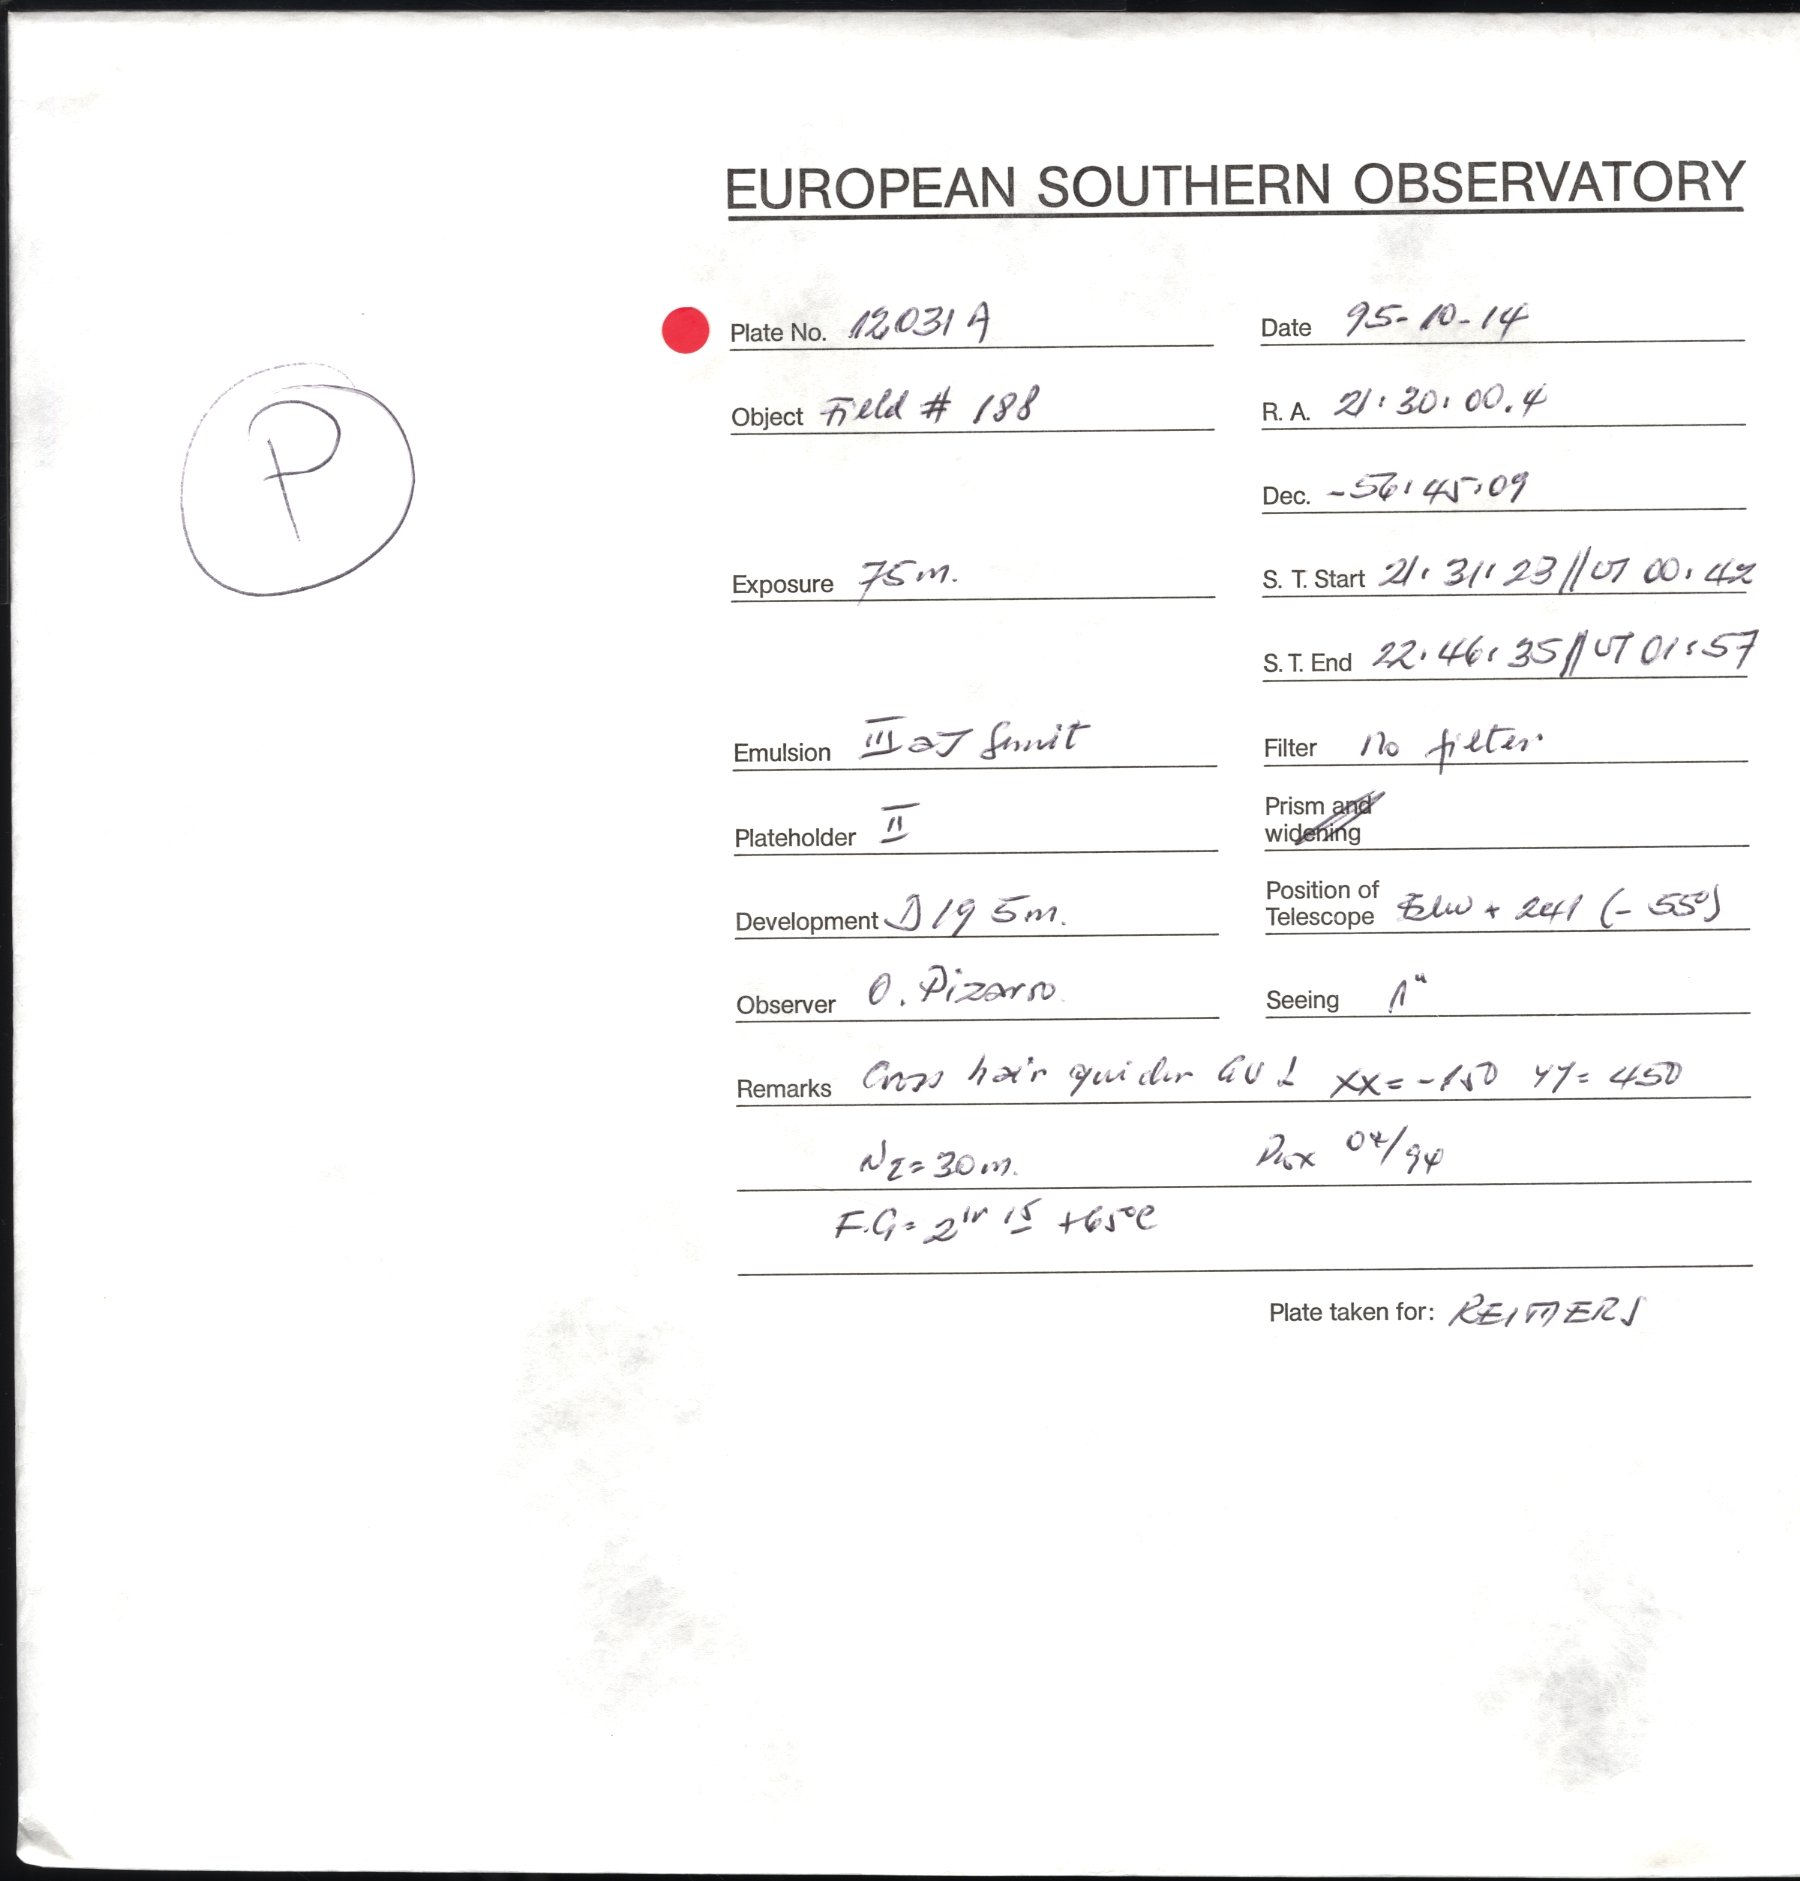 EUROPEAN SOUTHERN OBSERVATORY
Plate No. 12031 A Date 95-10-14
P
Object Field # 188 R. A. 21:30:00.4
Dec. -56:45:09
Exposure 75m. S. T. Start 21:31:23//UT 00:42
S. T. End 22:46:35//UT 01:57
Emulsion III aJ Filter no filter
Plateholder II Prism and
widening
Development D19 5m. Position of
Telescope + 241 (-55°)
Observer O. Pizarro Seeing 1"
Remarks Cross hair guider XX=-150 YY=450
N2=30m. 04/94
F.G= 2hr 15 +65°C
Plate taken for: REIMERS